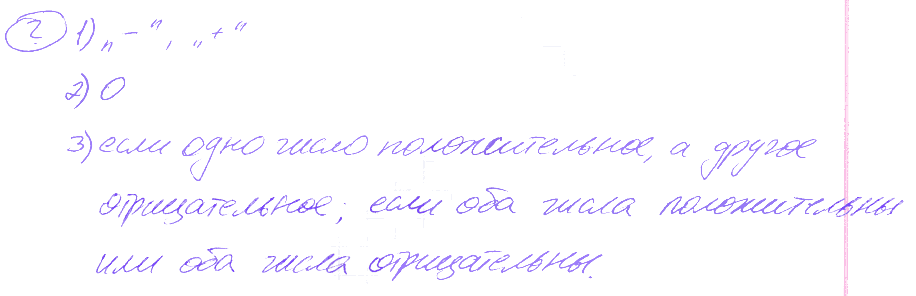 ? 1) „−“, „+“
2) 0
3) если одно число положительное, а другое
отрицательное; если оба числа положительны
или оба числа отрицательны.